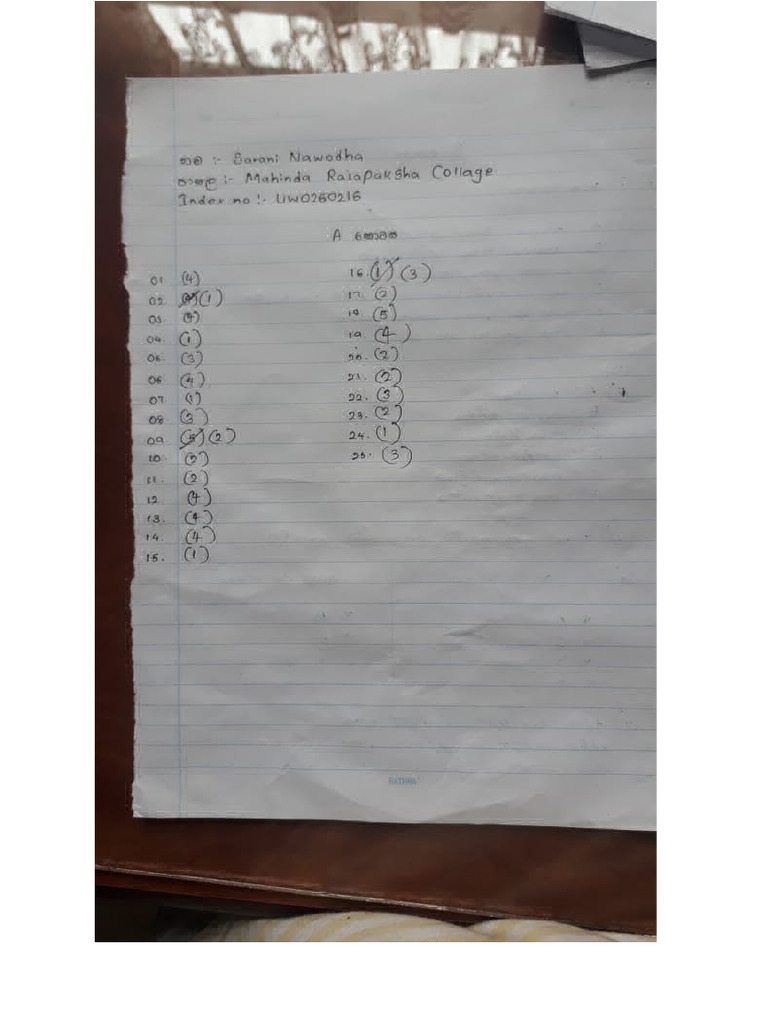 නම :- Barani Nawodha
පාසල :- Mahinda Rajapaksha Collage
Index no :- UW0260216
A කොටස
01 (4)
02. (1)
03. (4)
04. (1)
05. (3)
06 (4)
07. (1)
08 (3)
09. (5) (2)
10. (2)
11. (2)
12. (4)
13. (4)
14. (4)
15. (1)
16. (1) (3)
17. (2)
18. (5)
19. (4)
20. (2)
21. (2)
22. (3)
23. (2)
24. (1)
25. (3)
RATHNA